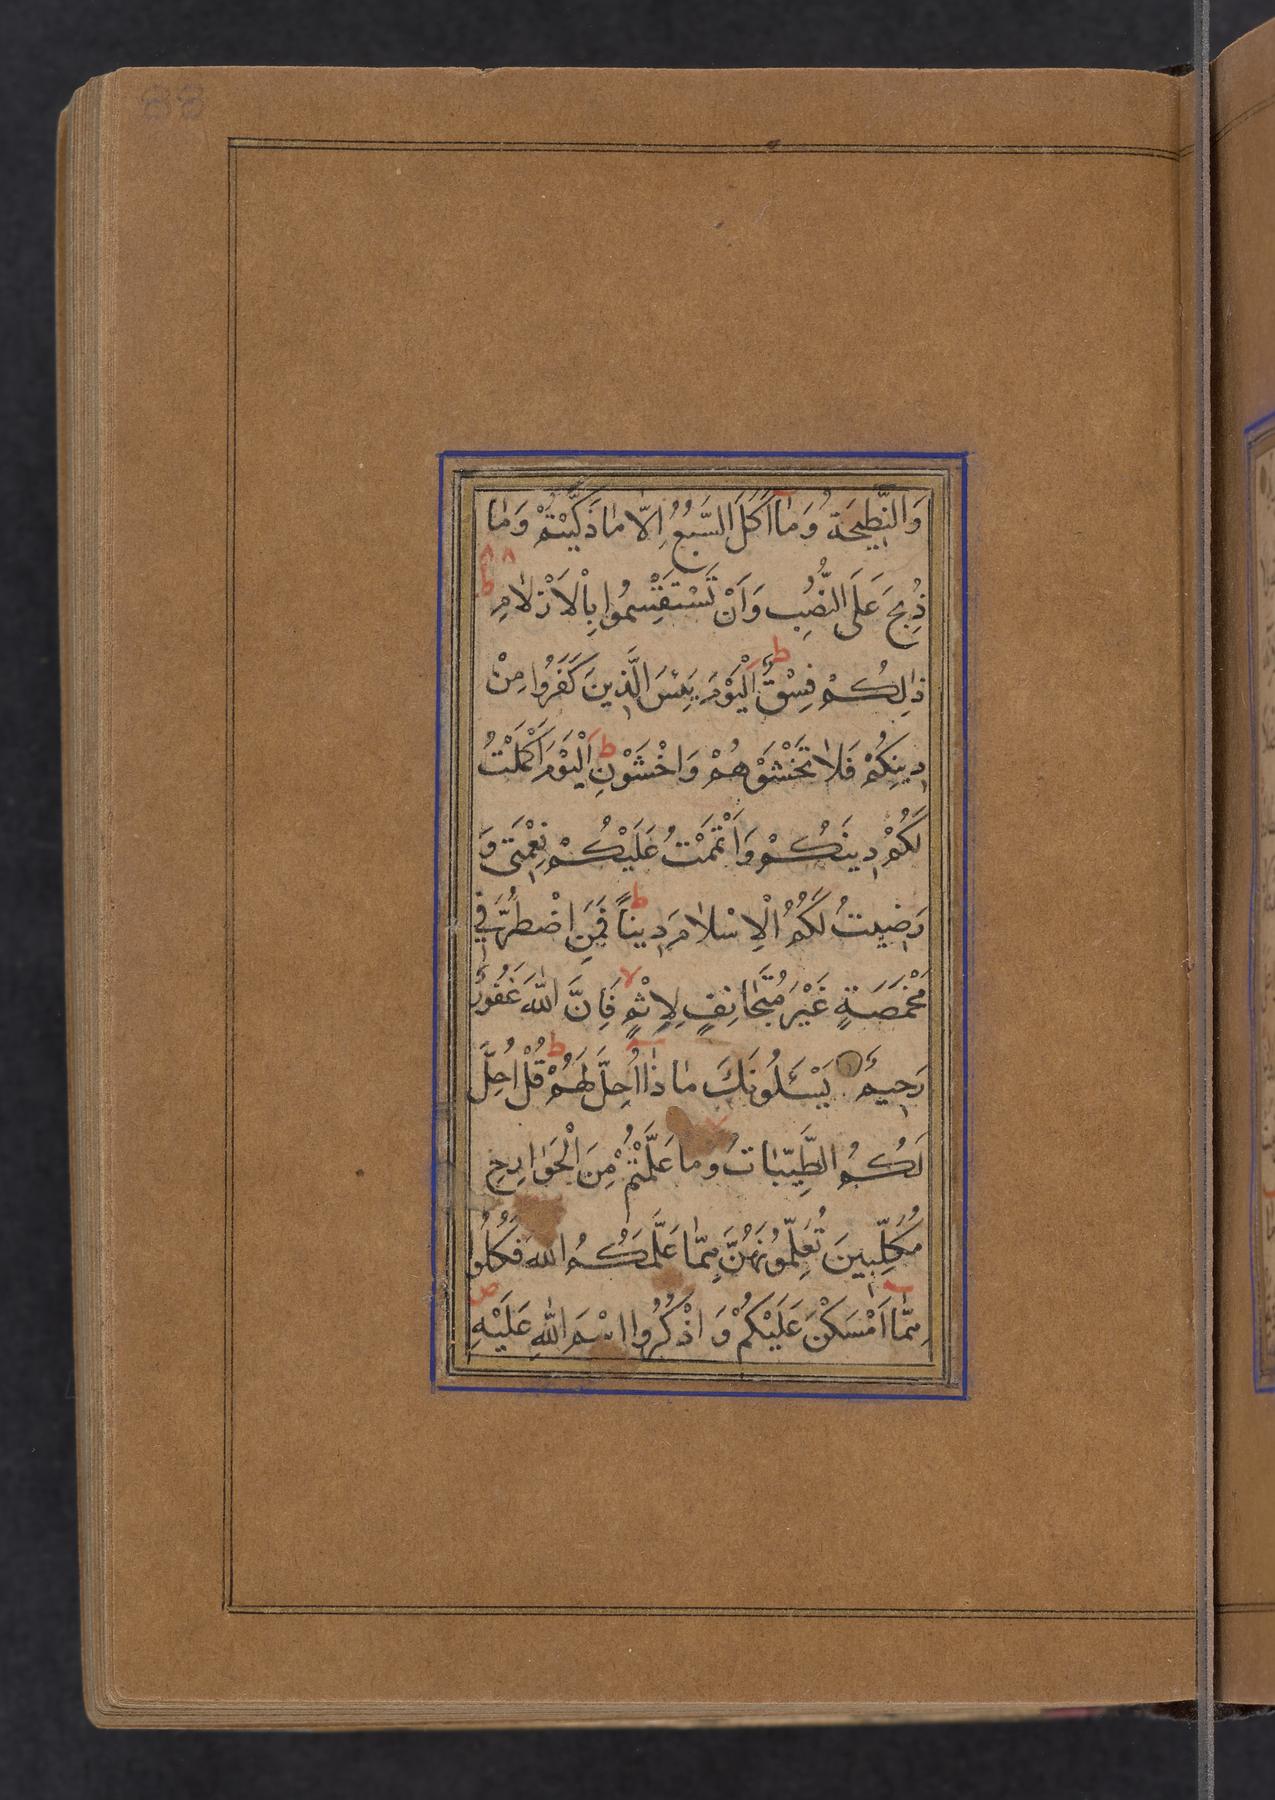 88
وَالنَّطِيحَةُ وَمٰا اَكَلَ السَّبُعُ اِلّٰا مٰا ذَكَّيْتُمْ وَمٰا
ذُبِحَ عَلَى النُّصُبِ وَاَنْ تَسْتَقْسِمُوا بِالْاَزْلٰامِ ط
ذٰلِكُمْ فِسْقٌ ط اَلْيَوْمَ يَئِسَ الَّذِينَ كَفَرُوا مِنْ
دِينِكُمْ فَلٰا تَخْشَوْهُمْ وَاخْشَوْنِ ط اَلْيَوْمَ اَكْمَلْتُ
لَكُمْ دِينَكُمْ وَاَتْمَمْتُ عَلَيْكُمْ نِعْمَتِى وَ
رَضِيتُ لَكُمُ الْاِسْلٰامَ دِيناً ط فَمَنِ اضْطُرَّ فِى
مَخْمَصَةٍ غَيْرَ مُتَجٰانِفٍ لِاِثْمٍ لا فَاِنَّ اللّٰهَ غَفُورٌ
رَحِيمٌ يَسْئَلُونَكَ مٰا ذٰا اُحِلَّ لَهُمْ ط قُلْ اُحِلَّ
لَكُمُ الطَّيِّبٰاتُ لا وَمٰا عَلَّمْتُمْ مِنَ الْجَوٰارِحِ
مُكَلِّبِينَ تُعَلِّمُونَهُنَّ مِمّٰا عَلَّمَكُمُ اللّٰهُ فَكُلُوا
مِمّٰا اَمْسَكْنَ عَلَيْكُمْ وَاذْكُرُوا اسْمَ اللّٰهِ عَلَيْهِ ص